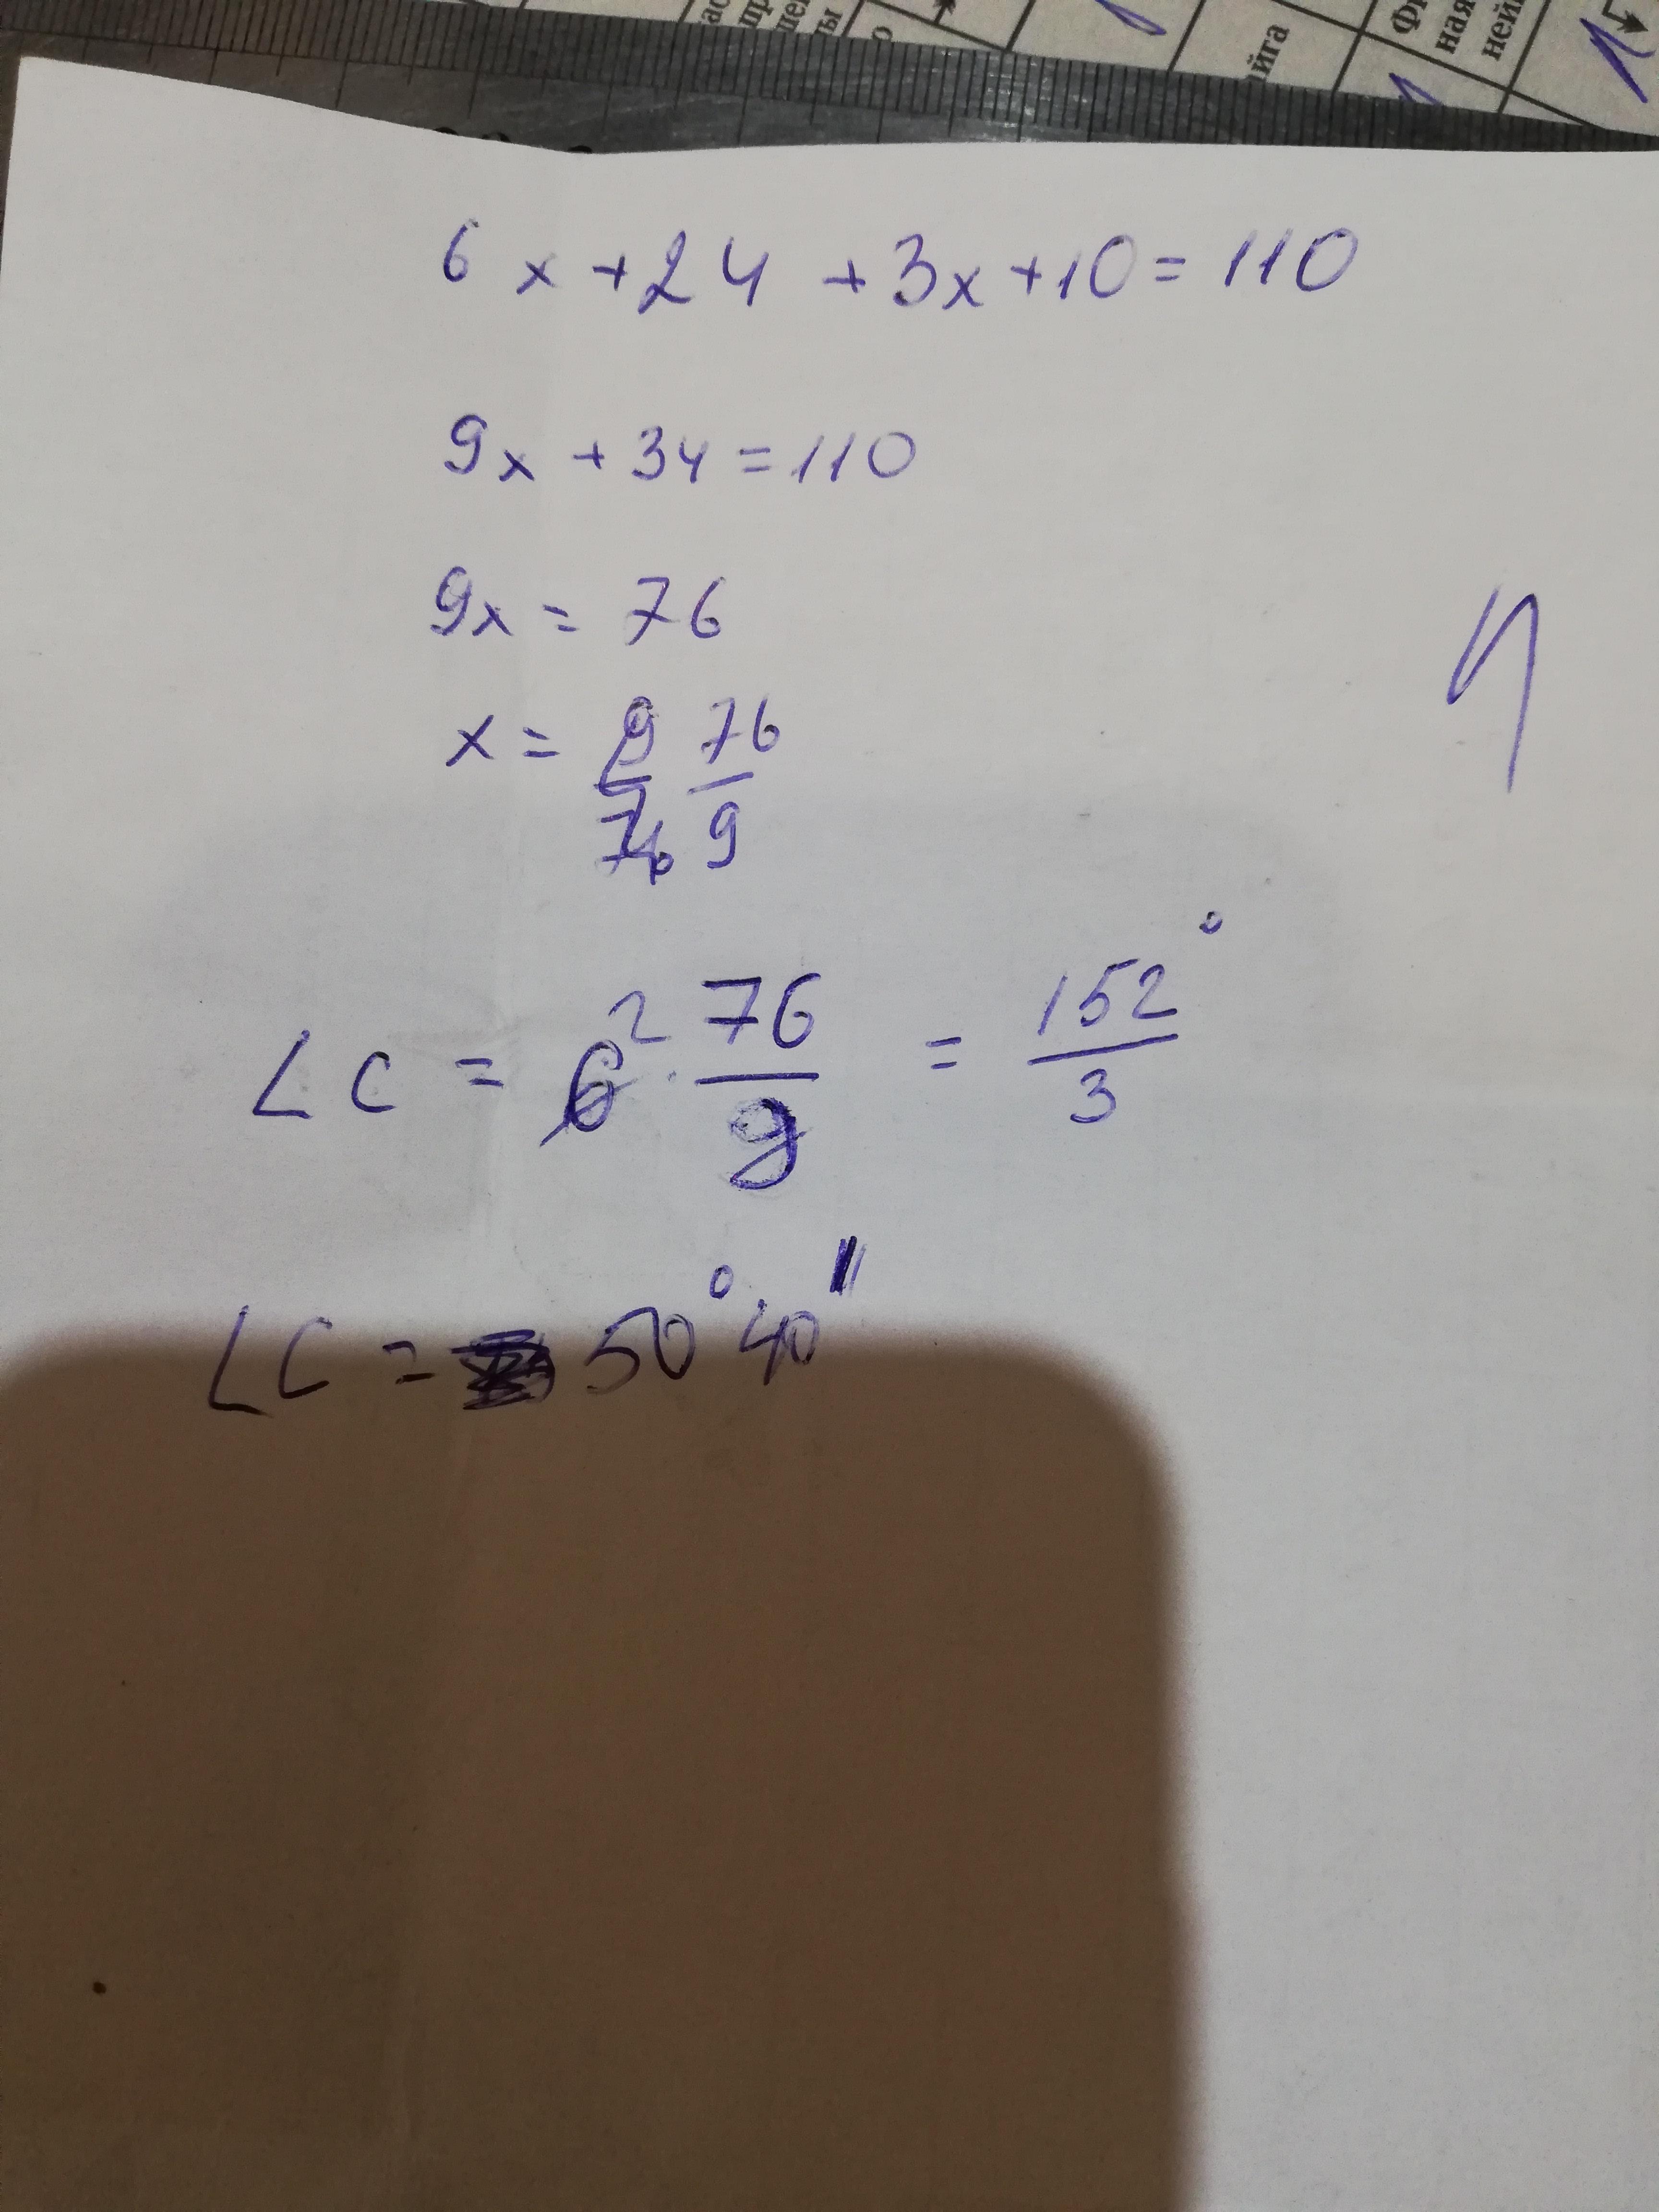 йга
ная
ней
6x + 24 + 3x + 10 = 110
9x + 34 = 110
9x = 76
x = 76/9
∠C = 6² · 76/9 = 152°/3
∠C = 50°40"